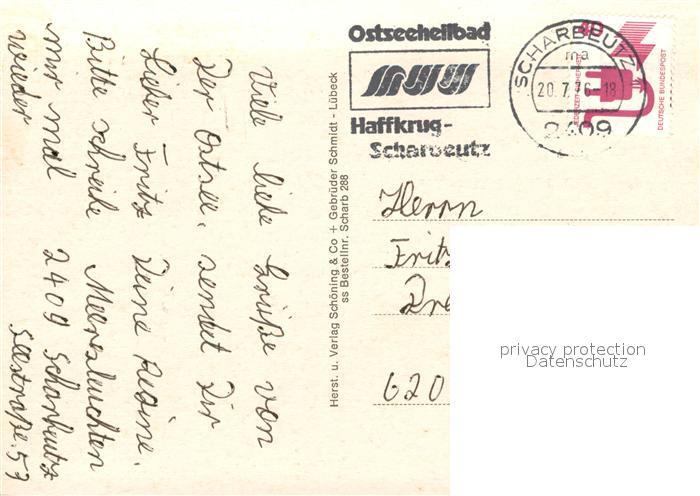 Viele liebe Grüße von
Der Ostsee. sendet Dir
Lieber Fritz Deine Regine.
Bitte schreibe Meeresleuchten
mir mal 2409 Scharbeutz
wieder Seestraße 59
Herst. u. Verlag Schöning & Co + Gebrüder Schmidt - Lübeck
ss Bestellnr. Scharb 288
Ostseeheilbad
Haffkrug-
Scharbeutz
SCHARBEUTZ
ma
20.7.76-18
2409
JEDERZEIT SICHERHEIT
DEUTSCHE BUNDESPOST
Herrn
Fritz
Dre
620
privacy protection
Datenschutz